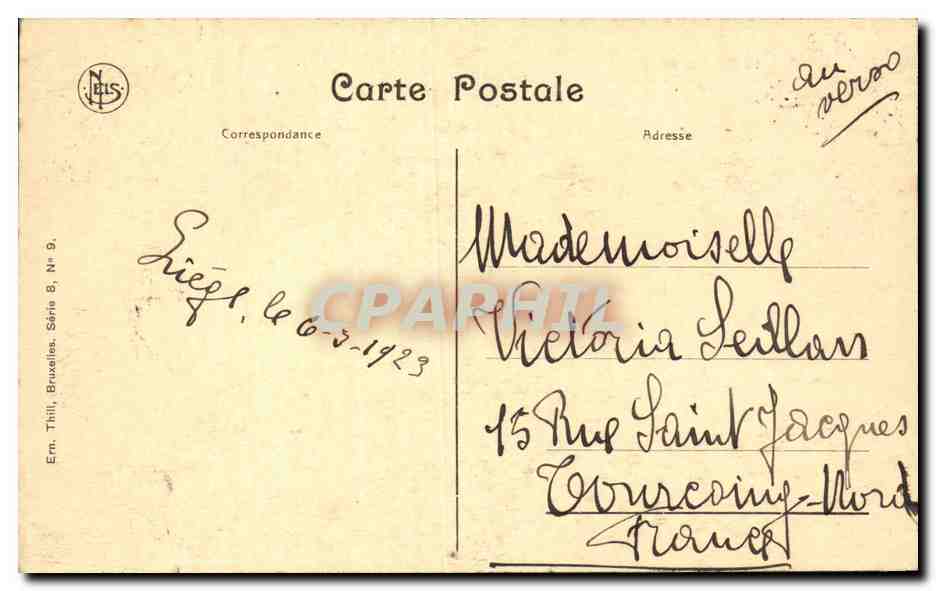 NELS
Carte Postale
au
verso
Correspondance
Adresse
Ern. Thill, Bruxelles. Série 8, No 9.
Liége, le 6-3-1923
Mademoiselle
Victoria Seillan
15 Rue Saint Jacques
Tourcoing-Nord
France
CPAPHIL